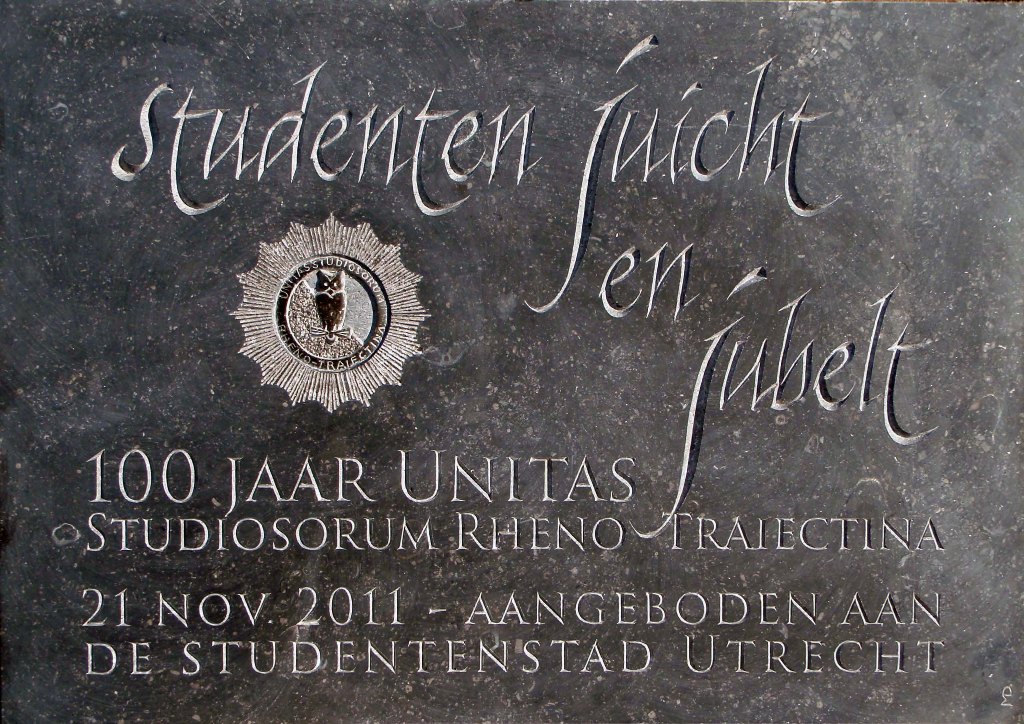 studenten juicht
en
jubelt
UNITAS STUDIOSORUM
RHENO-TRAIECTINA
100 JAAR UNITAS
STUDIOSORUM RHENO TRAIECTINA
21 NOV. 2011 - AANGEBODEN AAN
DE STUDENTENSTAD UTRECHT